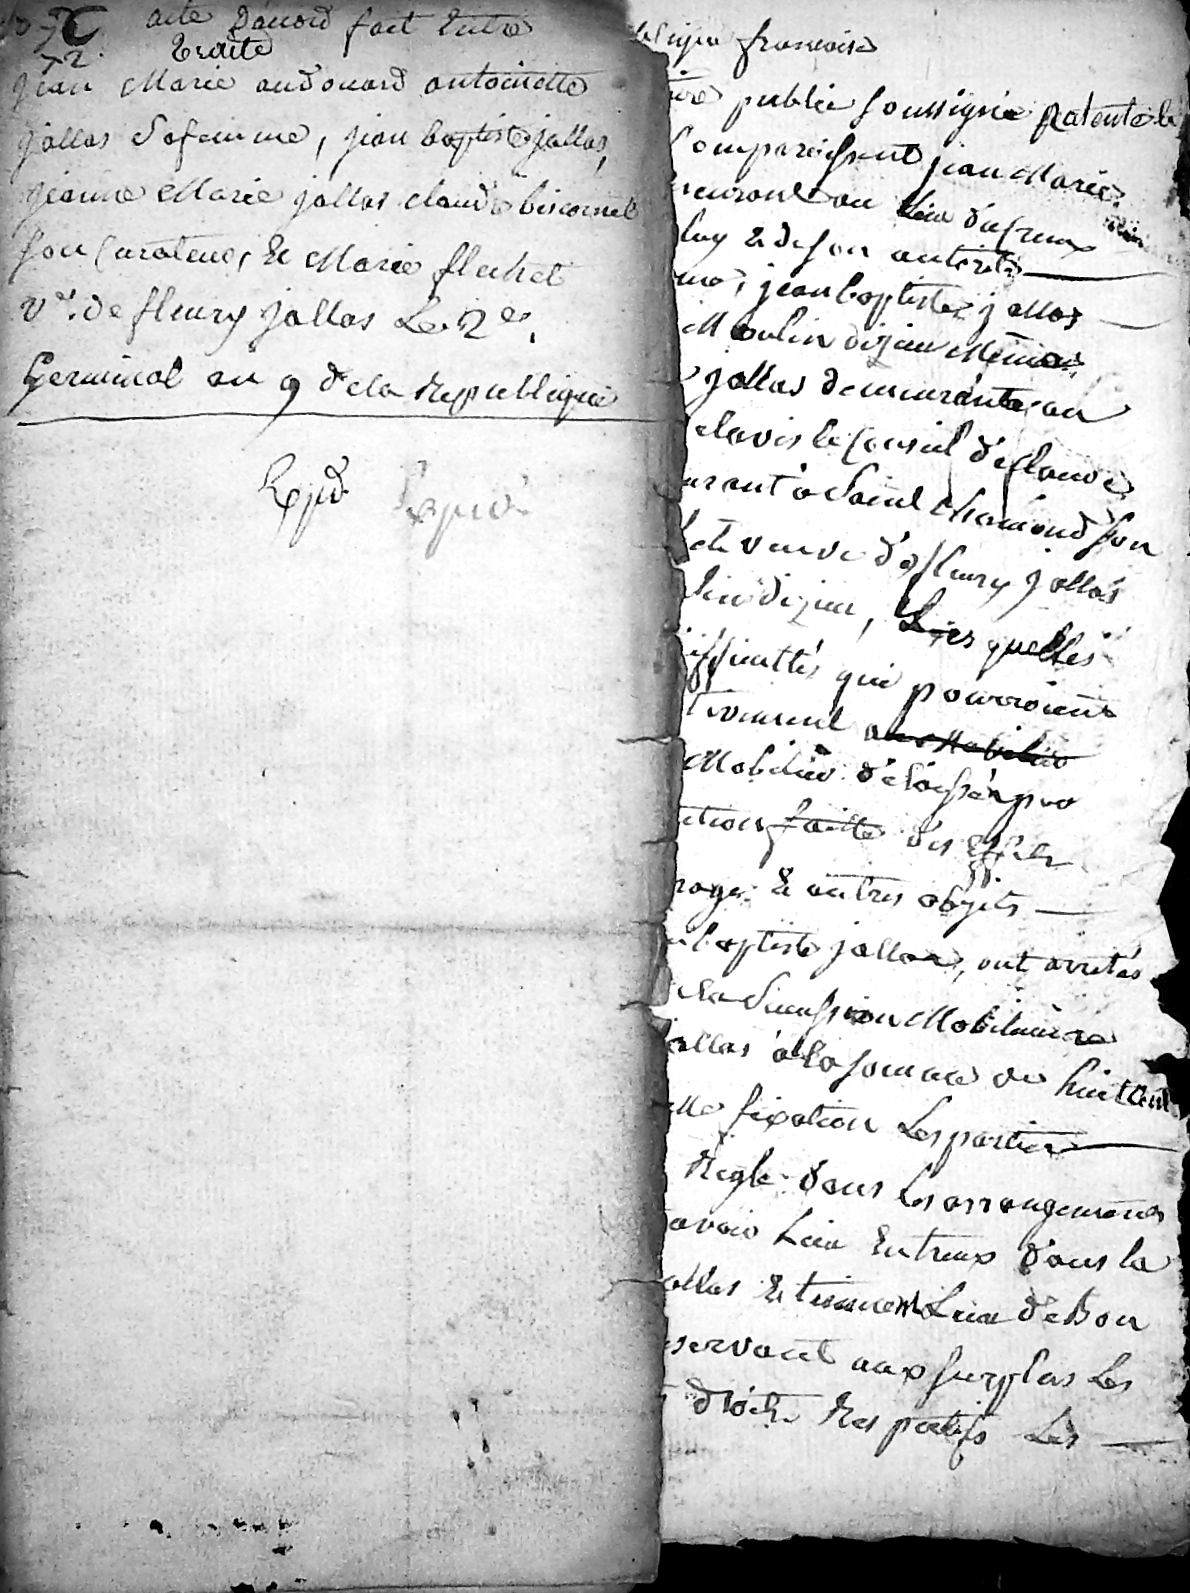 acte d'accord fait Entre
traité
72.
jean Marie audouard antoinette
jallas Safemme, jean baptiste jallas,
jeanne Marie jallas claude biscornet
son Curateur, Et Marie flechet
Ve. de fleury jallas Le 2e.
Germinal an 9 dela Republique
Expd. Expdié
blique francoise
publie soussigné patenté le
Comparoissent jean Marie
meurant au Lieu du creux
luy & de son autorité
jean baptiste jallas
Moulin dizieu
jallas demeurante au
Conseil de claude
urant a Saint Chamond Son
veuve de fleury jallas
dizieu, Lesquelles
ifficultés qui pourroient
Mobilier
Mobilier delaissé par
faitte des Effets
& autres objets
baptiste jallas, ont arrétés
la Succession Mobiliaire
allas a la somme de huit Cent
fixation Les parties
Regle dans Les arrangements
avoir Lieu Entreux dans la
allas Et tiennent Lieu de Bon
servant aux surplus Les
droits Respectifs Les